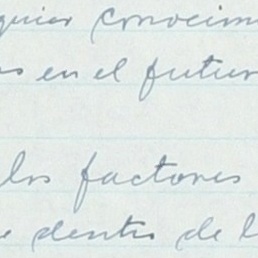 quier conocim
os en el futur
los factores
e dentro de l